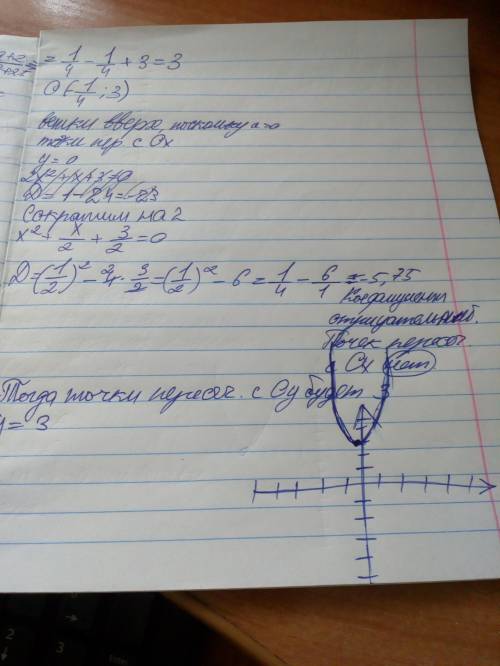 = 1/4 - 1/4 + 3 = 3
O (-1/4; 3)
ветки вверх, поскольку a>0
точки пер. с Ox
y=0
2x²+x+3=0
D=1-24=-23
Сократим на 2
x² + x/2 + 3/2 = 0
D=(1/2)² - 4 · 3/2 = (1/2)² - 6 = 1/4 - 6/1 = -5,75
отрицательный.
Точек пересеч.
с Ox нет
Тогда точки пересеч. с Oy будет 3
y= 3